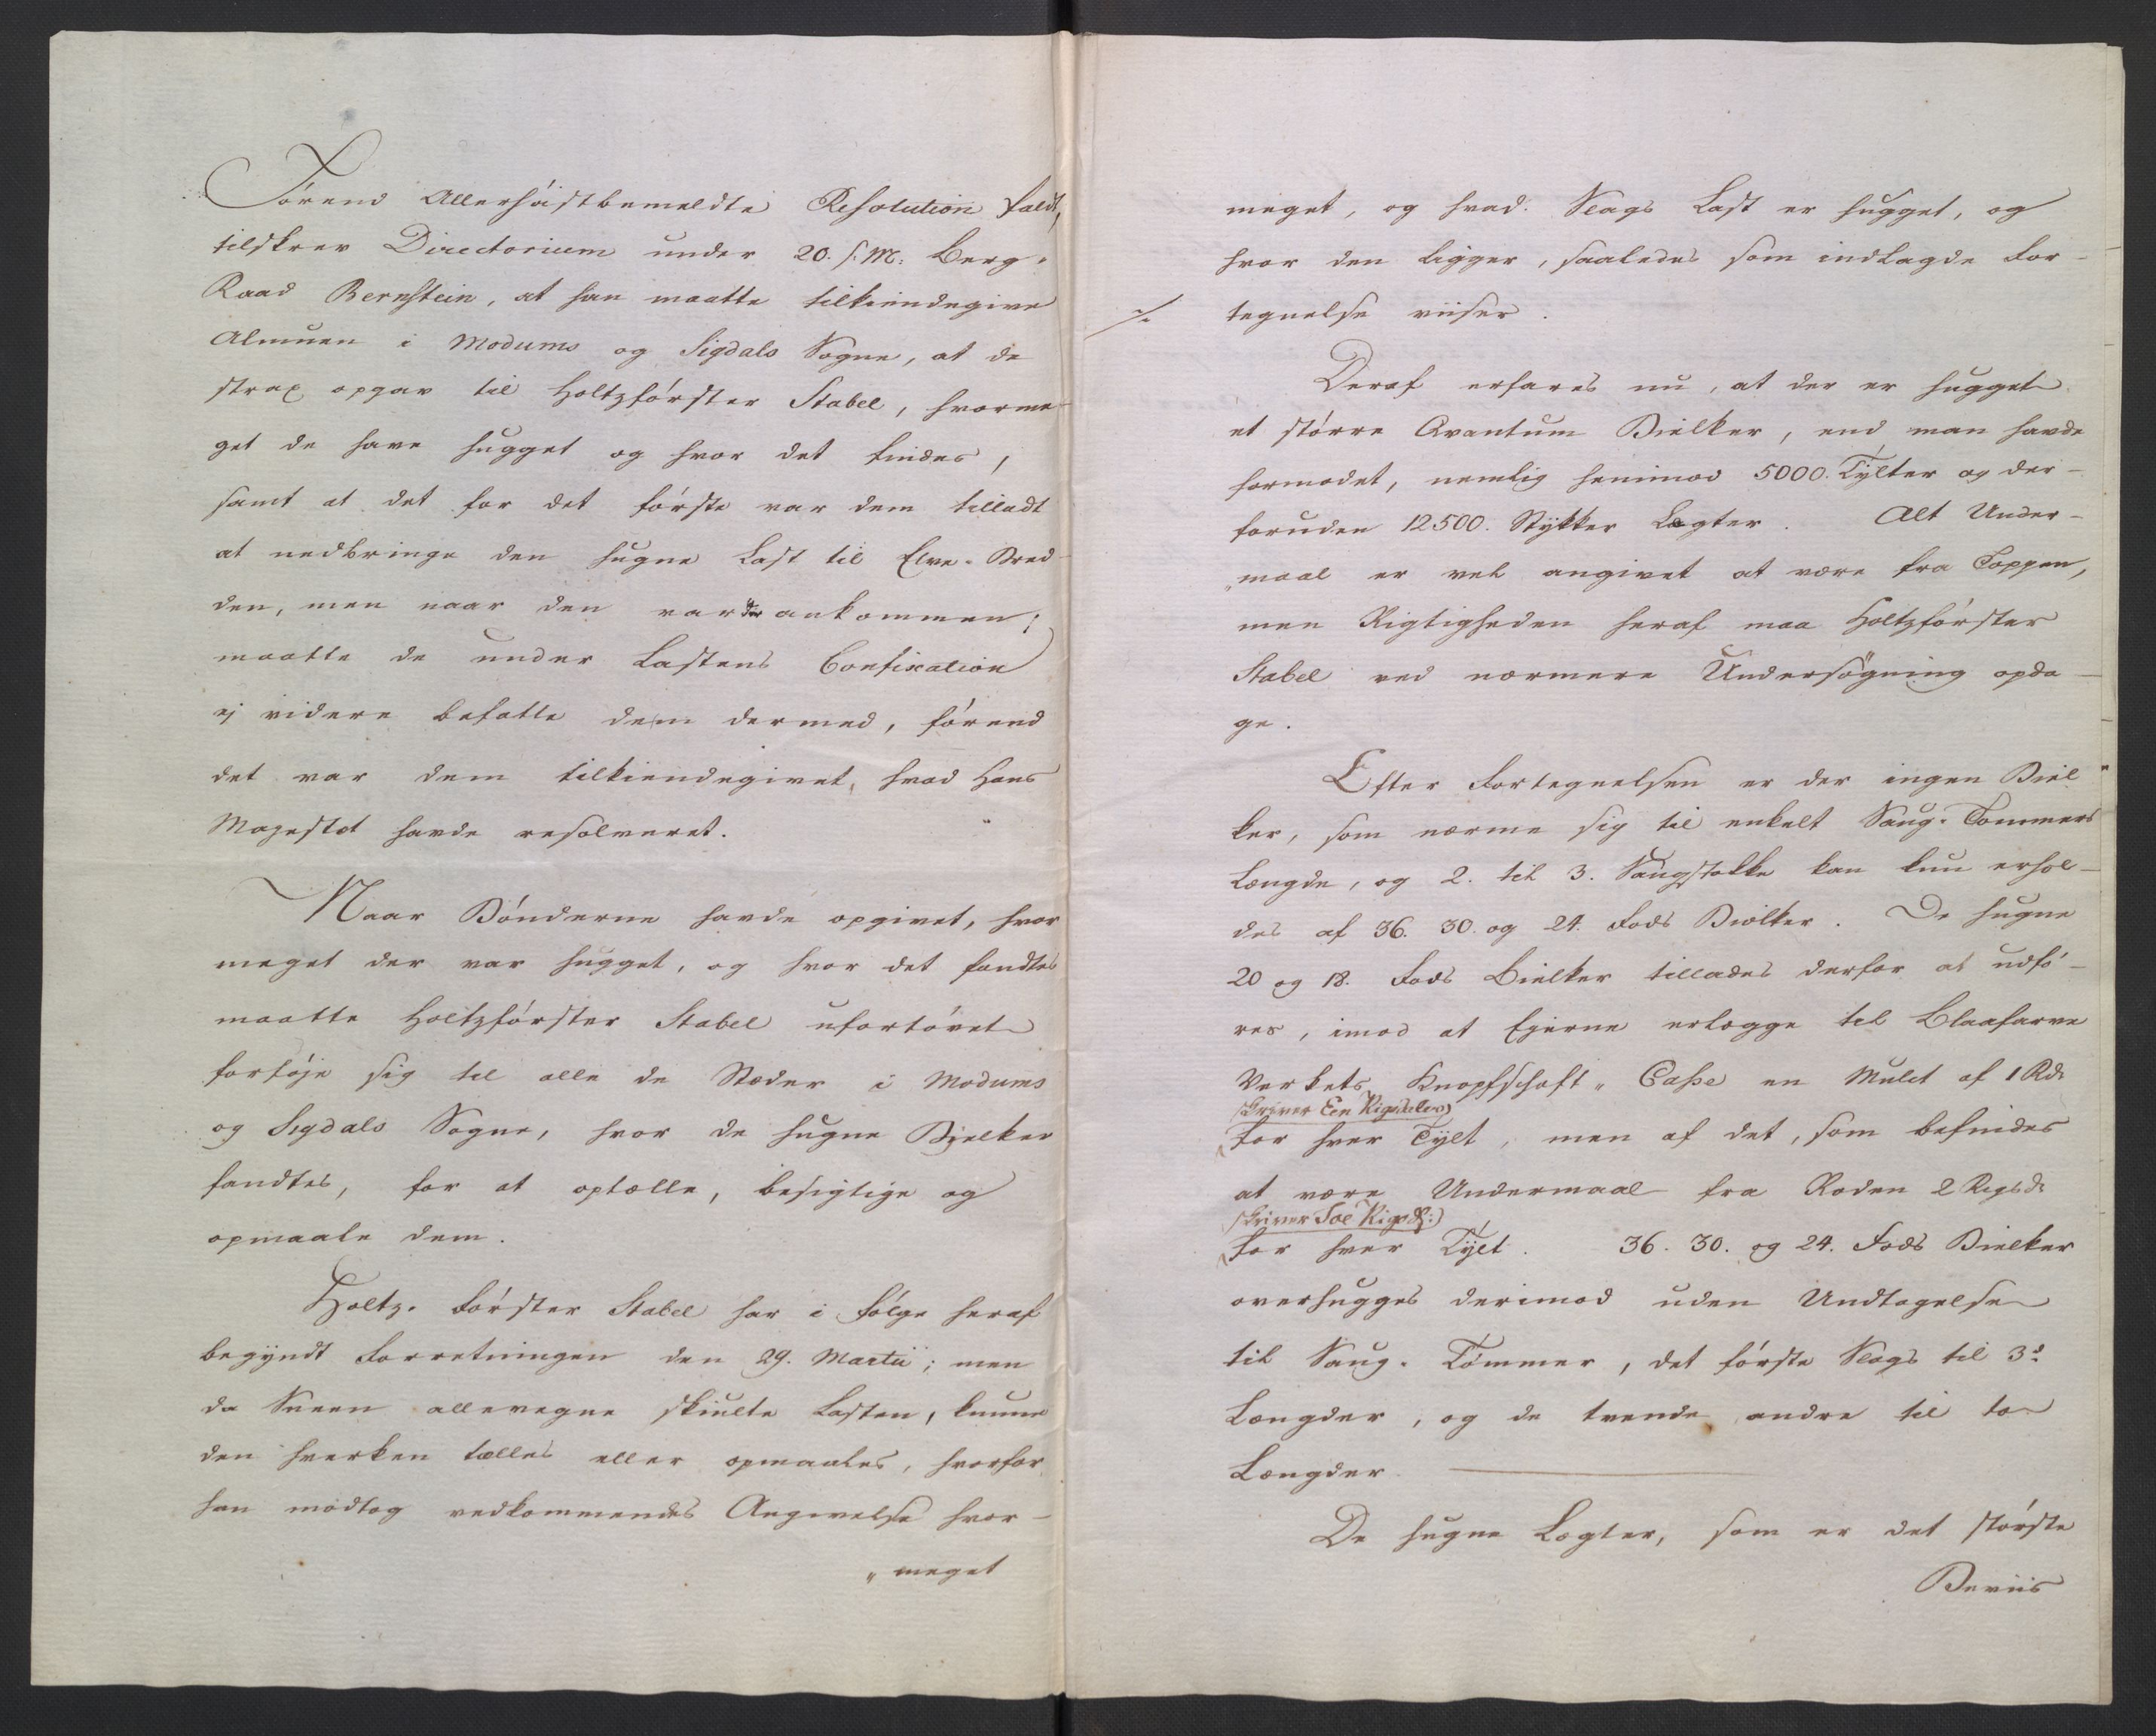 Förend Allerhöistbemeldte Resolution faldt,
tilskrev Directorium under 20. f: M: Berg-
Raad Bernstein, at han maatte tilkiendegive
Almuen i Modums og Sigdals Sogne, at de
strax opgav til Holtzförster Stabel, hvorme-
get de have hugget og hvor det findes,
samt at det for det förste var dem tilladt
at nedbringe den hugne Last til Elve-Bred-
den, men naar den var der ankommen;
maatte de under Lastens Confixation
ej videre befatte dem dermed, förend
det var dem tilkiendegivet, hvad Hans
Majestæt havde resolveret.
Naar Bönderne havde opgivet, hvor
meget der var hugget, og hvor det fandtes
maatte Holtzförster Stabel ufortövet
forföje sig til alle de Stæder i Modums
og Sigdals Sogne, hvor de hugne Bjelker
fandtes, for at optælle, besigtige og
opmaale dem.
Holtz-Förster Stabel har i fölge heraf
begÿndt Forretningen den 29. Martii; men
da Sneen allevegne skiulte Lasten, kunne
den hverken tælles eller opmaales, hvorfor
han modtog vedkommendes Angivelse hvor-
"meget
meget, og hvad Slags Last er hugget, og
hvor den ligger, saaledes som indlagde For-
./. tegnelse viiser.
Deraf erfares nu, at der er hugget
et större Qvantum Bielker, end man havde
formodet, nemlig henimod 5000. Tÿlter og der-
foruden 12500. Stÿkker Lægter. Alt Under-
"maal er vel angivet at være fra Toppen,
men Rigtigheden heraf maa Holtzförster
Stabel ved nærmere Undersögning opda-
ge.
Efter Fortegnelsen er der ingen Biel-
ker, som nærme sig til enkelt Saug-Tommers
Længde, og 2. til 3. Saugstokke kan kun erhol-
des af 36. 30. og 24. Fods Biælker. De hugne
20 og 18. Fods Bielker tillades derfor at udfö-
res, imod at Ejerne erlægge til Blaafarve
Verkets Knapfschaft-Casse en Mulct af 1 Rd:
skriver Een Rigsdaler)
for hver Tÿlt, men af det, som befindes
at være Undermaal fra Roden 2 Rigsd:
skriver Toe Rigsd:)
for hver Tÿlt. 36. 30. og 24. Fods Bielker
overhugges derimod uden Undtagelse
til Saug-Tömmer, det förste Slags til 3de
Længder, og de tvende andre til to
Længder.
De hugne Lægter, som er det störste
Beviis